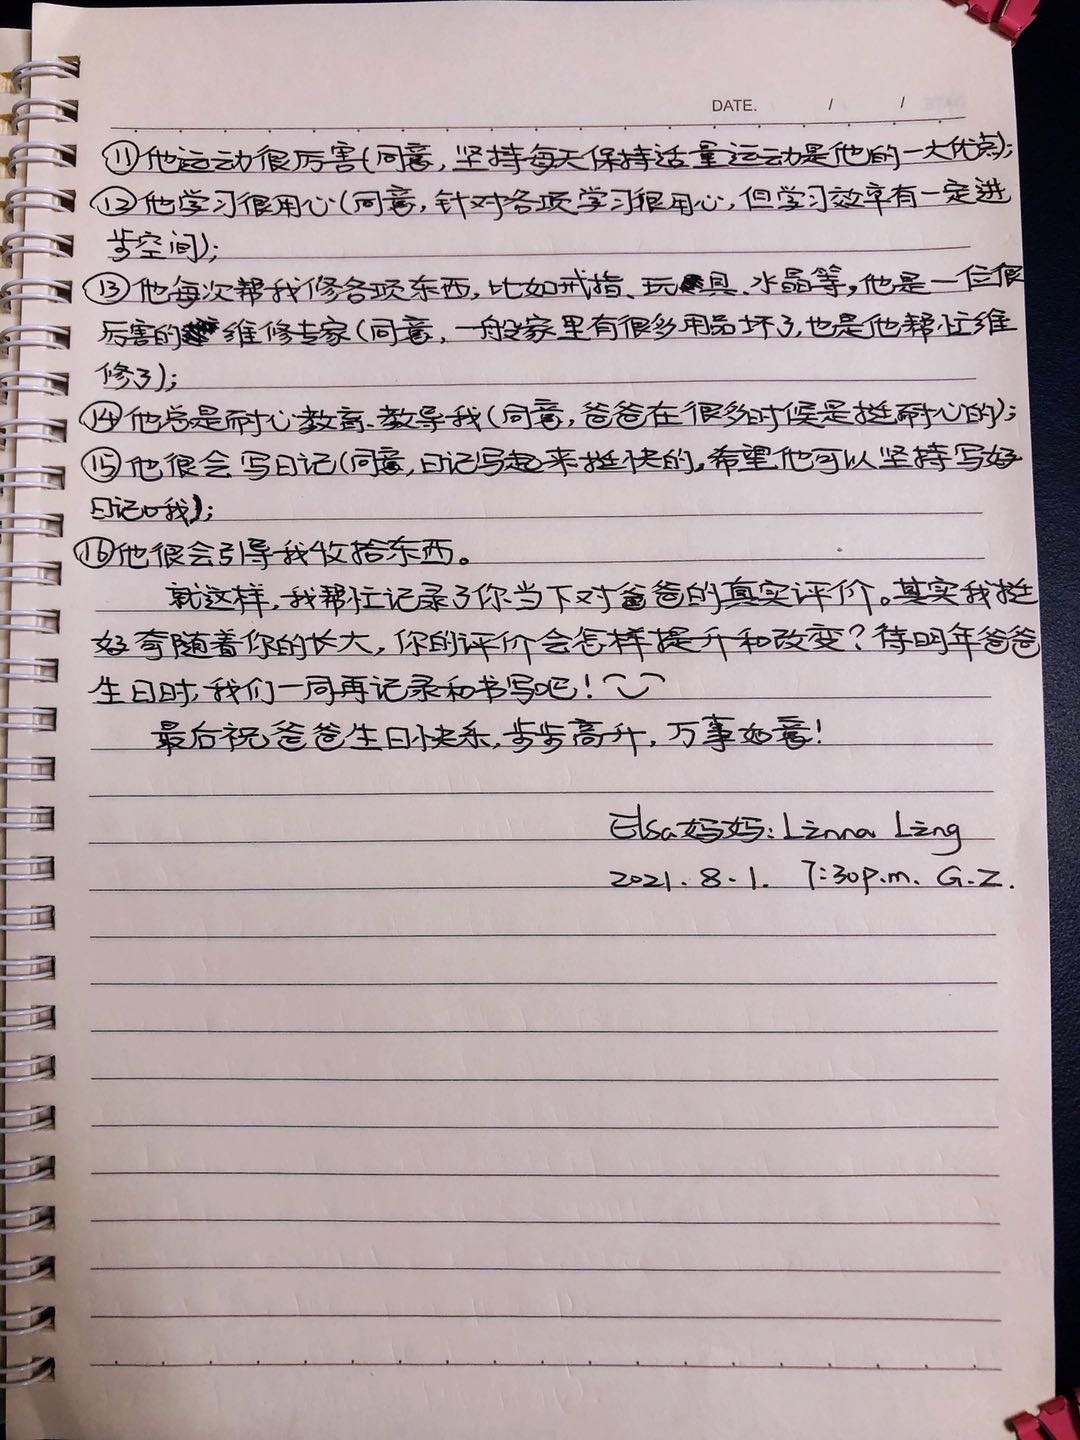 DATE. / /
⑪他运动很厉害(同意,坚持每天保持适量运动是他的一大优点);
⑫他学习很用心(同意,针对各项学习很用心,但学习效率有一定进
步空间);
⑬他每次帮我修各项东西,比如戒指、玩具、水晶等,他是一位很
厉害的维修专家(同意,一般家里有很多用品坏了,也是他帮忙维
修了);
⑭他总是耐心教育、教导我(同意,爸爸在很多时候是挺耐心的);
⑮他很会写日记(同意,日记写起来挺快的。希望他可以坚持写好
日记哦);
⑯他很会引导我收拾东西。
就这样,我帮忙记录了你当下对爸爸的真实评价。其实我挺
好奇随着你的长大,你的评价会怎样提升和改变?待明年爸爸
生日时,我们一同再记录和书写吧!
最后祝爸爸生日快乐,步步高升,万事如意!
Elsa妈妈:Linna Ling
2021.8.1. 7:30p.m. G.Z.